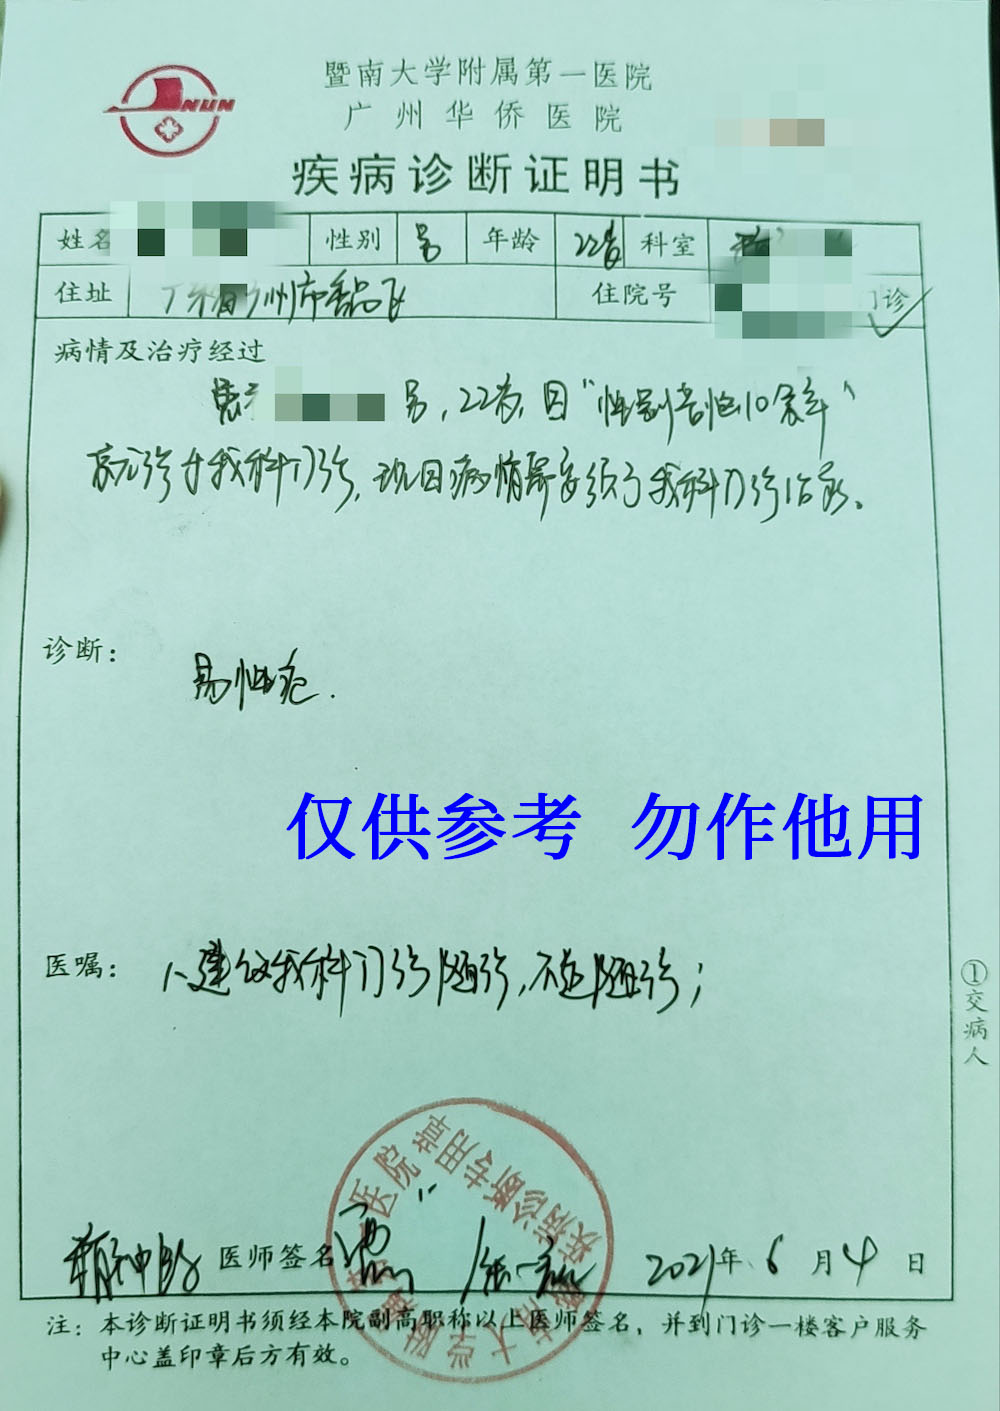 JNUN
暨南大学附属第一医院
广州华侨医院
疾病诊断证明书
姓名 性别 男 年龄 22岁 科室
住址 广东省广州市番禺区 住院号 门诊
病情及治疗经过
患者 男，22岁，因“性别苦恼10余年”
就诊于我科门诊，现因病情需要须于我科门诊治疗。
诊断：
易性症.
仅供参考 勿作他用
医嘱：
1、建议我科门诊随诊，不适随诊；
①交病人
精神科 医师签名 2021年6月4日
医院 章
疾病诊断专用
注：本诊断证明书须经本院副高职称以上医师签名，并到门诊一楼客户服务
中心盖印章后方有效。